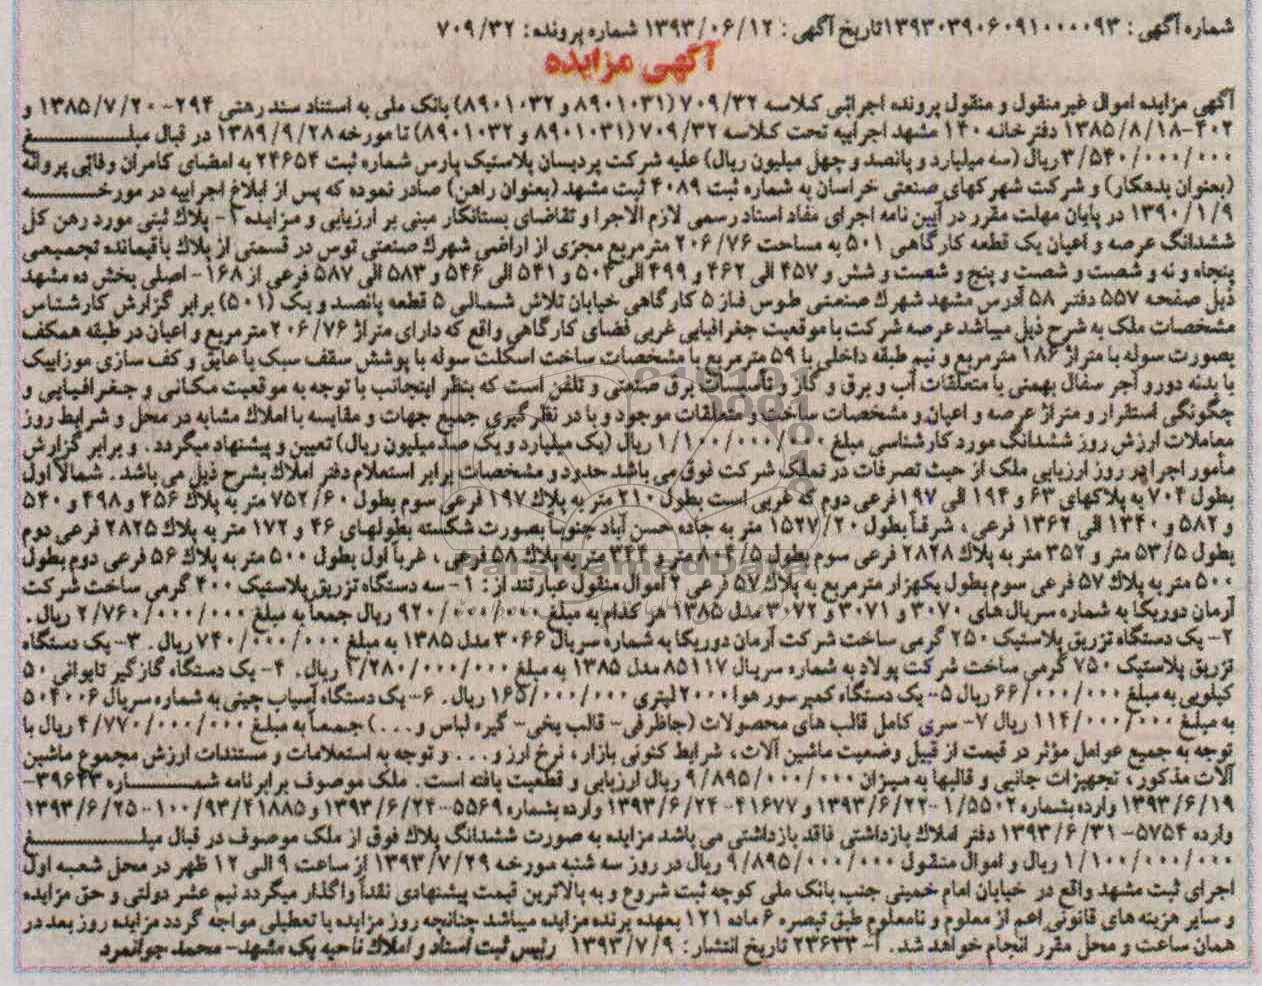 شماره آگهی: ۱۳۹۳۰۳۹۰۶۰۹۱۰۰۰۰۹۳ تاریخ آگهی: ۱۳۹۳/۰۶/۱۲ شماره پرونده: ۷۰۹/۳۲
آگهی مزایده
آگهی مزایده اموال غیرمنقول و منقول پرونده اجرائی کلاسه ۷۰۹/۳۲ (۸۹۰۱۰۳۱ و ۸۹۰۱۰۳۲) بانک ملی به استناد سند رهنی ۲۹۴-۱۳۸۵/۷/۲۰ و
۴۰۲-۱۳۸۵/۸/۱۸ دفترخانه ۱۴۰ مشهد اجراییه تحت کلاسه ۷۰۹/۳۲ (۸۹۰۱۰۳۱ و ۸۹۰۱۰۳۲) تا مورخه ۱۳۸۹/۹/۲۸ در قبال مبلغ
۳/۵۴۰/۰۰۰/۰۰۰ ریال (سه میلیارد و پانصد و چهل میلیون ریال) علیه شرکت پردیسان پلاستیک پارس شماره ثبت ۲۴۶۵۴ به امضای کامران وفائی پروانه
(بعنوان بدهکار) و شرکت شهرکهای صنعتی خراسان به شماره ثبت ۴۰۸۹ ثبت مشهد (بعنوان راهن) صادر نموده که پس از ابلاغ اجراییه در مورخه
۱۳۹۰/۱/۹ در پایان مهلت مقرر در آیین نامه اجرای مفاد اسناد رسمی لازم الاجرا و تقاضای بستانکار مبنی بر ارزیابی و مزایده ۱- پلاک ثبتی مورد رهن کل
ششدانگ عرصه و اعیان یک قطعه کارگاهی ۵۰۱ به مساحت ۲۰۶/۷۶ متر مربع مجزی از اراضی شهرک صنعتی توس در قسمتی از پلاک باقیمانده تجمیعی
پنجاه و نه و شصت و شصت و پنج و شصت و شش و ۴۵۷ الی ۴۶۲ و ۴۹۹ الی ۵۰۴ و ۵۴۱ الی ۵۴۶ و ۵۸۳ الی ۵۸۷ فرعی از ۱۶۸- اصلی بخش ده مشهد
ذیل صفحه ۵۵۷ دفتر ۵۸ آدرس مشهد شهرک صنعتی طوس فاز ۵ کارگاهی خیابان تلاش شمالی ۵ قطعه پانصد و یک (۵۰۱) برابر گزارش کارشناس
مشخصات ملک به شرح ذیل میباشد عرصه شرکت با موقعیت جغرافیایی غربی فضای کارگاهی واقع که دارای متراژ ۲۰۶/۷۶ مترمربع و اعیان در طبقه همکف
بصورت سوله با متراژ ۱۸۶ مترمربع و نیم طبقه داخلی با ۵۹ مترمربع با مشخصات ساخت اسکلت سوله با پوشش سقف سبک با عایق و کف سازی موزاییک
با بدنه دورو آجر سفال بهمنی با متعلقات آب و برق و گاز و تأسیسات برق صنعتی و تلفن است که بنظر اینجانب با توجه به موقعیت مکانی و جغرافیایی و
چگونگی استقرار و متراژ عرصه و اعیان و مشخصات ساخت و متعلقات موجود و با در نظر گیری جمیع جهات و مقایسه با املاک مشابه در محل و شرایط روز
معاملات ارزش روز ششدانگ مورد کارشناسی مبلغ ۱/۱۰۰/۰۰۰/۰۰۰ ریال (یک میلیارد و یک صد میلیون ریال) تعیین و پیشنهاد میگردد. و برابر گزارش
مأمور اجرا در روز ارزیابی ملک از حیث تصرفات در تملک شرکت فوق می باشد حدود و مشخصات برابر استعلام دفتر املاک بشرح ذیل می باشد. شمالاً اول
بطول ۷۰۴ به پلاکهای ۶۳ و ۱۹۴ الی ۱۹۷ فرعی دوم که غربی است بطول ۲۱۰ متر به پلاک ۱۹۷ فرعی سوم بطول ۷۵۲/۶۰ متر به پلاک ۴۵۶ و ۴۹۸ و ۵۴۰
و ۵۸۲ و ۱۳۴۰ الی ۱۳۶۲ فرعی، شرقاً بطول ۱۵۲۷/۲۰ متر به جاده حسن آباد جنوباً بصورت شکسته بطولهای ۴۶ و ۱۷۲ متر به پلاک ۲۸۲۵ فرعی دوم
بطول ۵۳/۵ متر و ۳۵۲ متر به پلاک ۲۸۲۸ فرعی سوم بطول ۸۰۴/۵ متر و ۳۴۴ متر به پلاک ۵۸ فرعی، غرباً اول بطول ۵۰۰ متر به پلاک ۵۶ فرعی دوم بطول
۵۰۰ متر به پلاک ۵۷ فرعی سوم بطول یکهزار مترمربع به پلاک ۵۷ فرعی ۲ اموال منقول عبارتند از: ۱- سه دستگاه تزریق پلاستیک ۴۰۰ گرمی ساخت شرکت
آرمان دوربکا به شماره سریال های ۳۰۷۰ و ۳۰۷۱ و ۳۰۷۲ مدل ۱۳۸۵ هر کدام به مبلغ ۹۲۰/۰۰۰/۰۰۰ ریال جمعاً به مبلغ ۲/۷۶۰/۰۰۰/۰۰۰ ریال.
۲- یک دستگاه تزریق پلاستیک ۲۵۰ گرمی ساخت شرکت آرمان دوربکا به شماره سریال ۳۰۶۶ مدل ۱۳۸۵ به مبلغ ۷۴۰/۰۰۰/۰۰۰ ریال. ۳- یک دستگاه
تزریق پلاستیک ۷۵۰ گرمی ساخت شرکت پولاد به شماره سریال ۸۵۱۱۷ مدل ۱۳۸۵ به مبلغ /۲۸۰/۰۰۰/۰۰۰ ریال. ۴- یک دستگاه گازگیر تایوانی ۵۰
کیلویی به مبلغ ۶۶/۰۰۰/۰۰۰ ریال ۵- یک دستگاه کمپرسور هوا ۲۰۰۰ لیتری ۱۶۵/۰۰۰/۰۰۰ ریال. ۶- یک دستگاه آسیاب چینی به شماره سریال ۵۰۴۰۰۶
به مبلغ ۱۱۴/۰۰۰/۰۰۰ ریال ۷- سری کامل قالب های محصولات (جاظرفی- قالب یخی- گیره لباس و...) جمعاً به مبلغ ۴/۷۷۰/۰۰۰/۰۰۰ ریال با
توجه به جمیع عوامل مؤثر در قیمت از قبیل وضعیت ماشین آلات، شرایط کنونی بازار، نرخ ارز و... و توجه به استعلامات و مستندات ارزش مجموع ماشین
آلات مذکور، تجهیزات جانبی و قالبها به میزان ۹/۸۹۵/۰۰۰/۰۰۰ ریال ارزیابی و قطعیت یافته است. ملک موصوف برابر نامه شماره ۳۹۶۴۳-
۱۳۹۳/۶/۱۹ وارده بشماره ۱/۵۵۰۲-۱۳۹۳/۶/۲۲ و ۴۱۶۷۷-۱۳۹۳/۶/۲۴ وارده بشماره ۵۵۶۹-۱۳۹۳/۶/۲۴ و ۱۰۰/۹۳/۴۱۸۸۵-۱۳۹۳/۶/۲۵
وارده ۵۷۵۴-۱۳۹۳/۶/۳۱ دفتر املاک بازداشتی فاقد بازداشتی می باشد مزایده به صورت ششدانگ پلاک فوق از ملک موصوف در قبال مبلغ
۱/۱۰۰/۰۰۰/۰۰۰ ریال و اموال منقول ۹/۸۹۵/۰۰۰/۰۰۰ ریال در روز سه شنبه مورخه ۱۳۹۳/۷/۲۹ از ساعت ۹ الی ۱۲ ظهر در محل شعبه اول
اجرای ثبت مشهد واقع در خیابان امام خمینی جنب بانک ملی کوچه ثبت شروع و به بالاترین قیمت پیشنهادی نقداً واگذار میگردد نیم عشر دولتی و حق مزایده
و سایر هزینه های قانونی اعم از معلوم و نامعلوم طبق تبصره ۶ ماده ۱۲۱ بعهده برنده مزایده میباشد چنانچه روز مزایده با تعطیلی مواجه گردد مزایده روز بعد در
همان ساعت و محل مقرر انجام خواهد شد. آ-۲۳۶۳۳ تاریخ انتشار: ۱۳۹۳/۷/۹ رئیس ثبت اسناد و املاک ناحیه یک مشهد- محمد جوانمرد
ParsNamadData